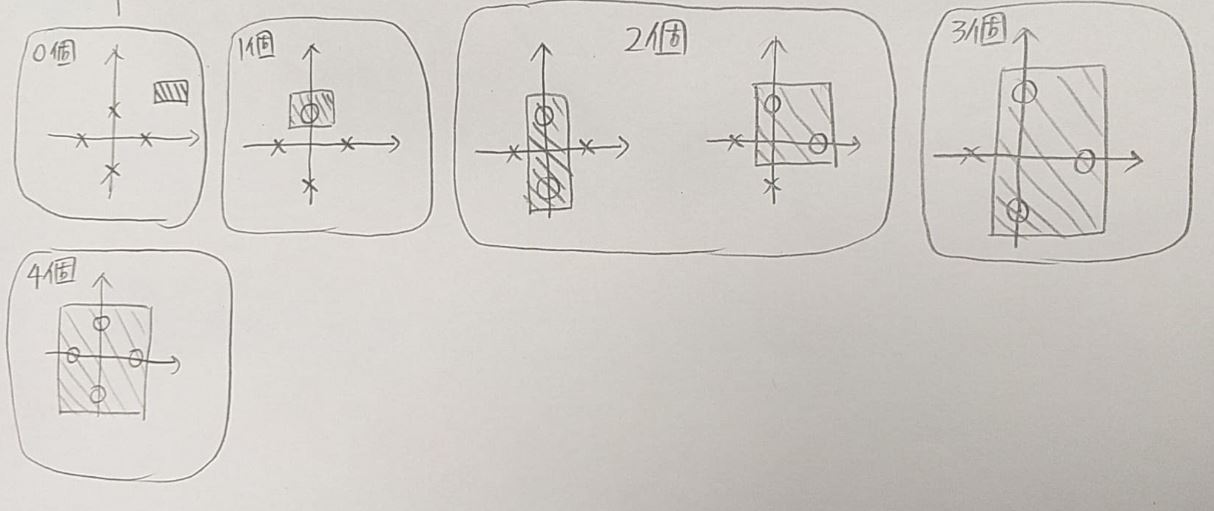 0個
1個
2個
3個
4個